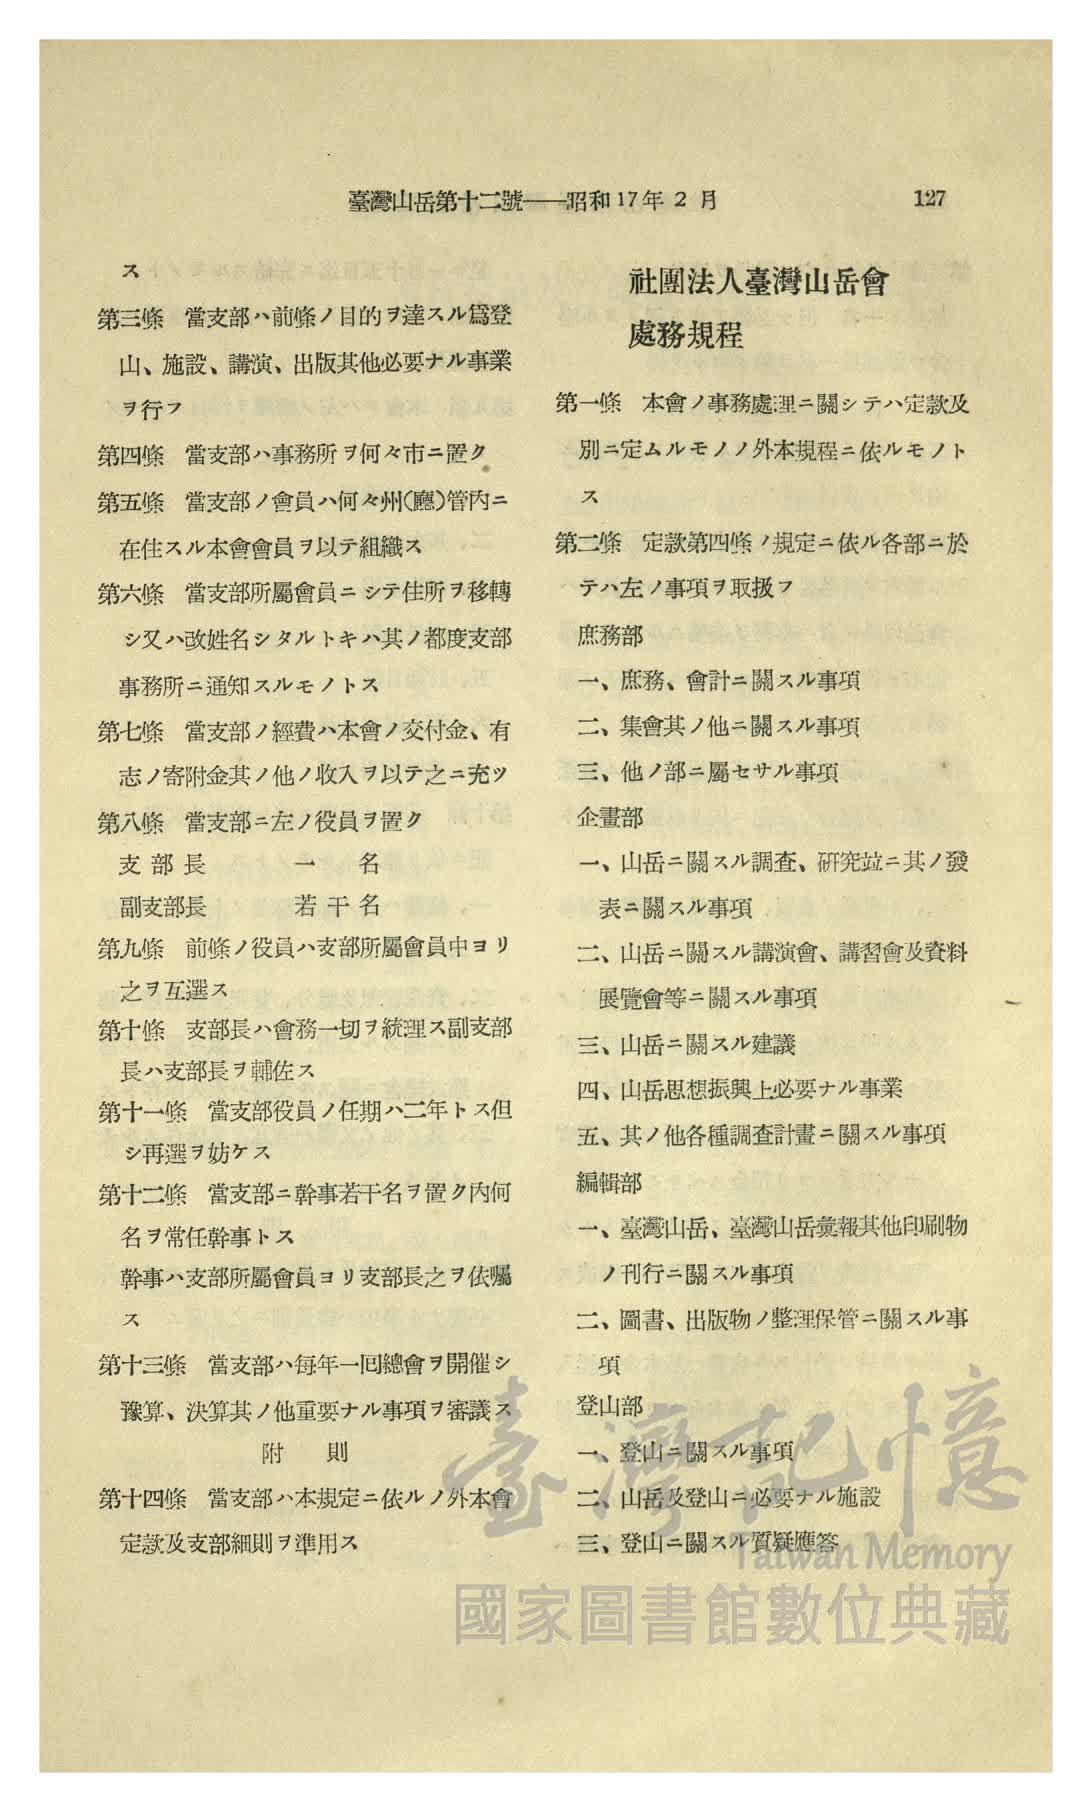 臺灣山岳第十二號——昭和17年2月 127
ス
第三條 當支部ハ前條ノ目的ヲ達スル爲登
山、施設、講演、出版其他必要ナル事業
ヲ行フ
第四條 當支部ハ事務所ヲ何々市ニ置ク
第五條 當支部ノ會員ハ何々州(廳)管内ニ
在住スル本會會員ヲ以テ組織ス
第六條 當支部所屬會員ニシテ住所ヲ移轉
シ又ハ改姓名シタルトキハ其ノ都度支部
事務所ニ通知スルモノトス
第七條 當支部ノ經費ハ本會ノ交付金、有
志ノ寄附金其ノ他ノ收入ヲ以テ之ニ充ツ
第八條 當支部ニ左ノ役員ヲ置ク
支部長 一名
副支部長 若干名
第九條 前條ノ役員ハ支部所屬會員中ヨリ
之ヲ互選ス
第十條 支部長ハ會務一切ヲ統理ス副支部
長ハ支部長ヲ輔佐ス
第十一條 當支部役員ノ任期ハ二年トス但
シ再選ヲ妨ケス
第十二條 當支部ニ幹事若干名ヲ置ク内何
名ヲ常任幹事トス
幹事ハ支部所屬會員ヨリ支部長之ヲ依囑
ス
第十三條 當支部ハ每年一回總會ヲ開催シ
豫算、決算其ノ他重要ナル事項ヲ審議ス
附則
第十四條 當支部ハ本規定ニ依ルノ外本會
定款及支部細則ヲ準用ス
社團法人臺灣山岳會
處務規程
第一條 本會ノ事務處理ニ關シテハ定款及
別ニ定ムルモノノ外本規程ニ依ルモノト
ス
第二條 定款第四條ノ規定ニ依ル各部ニ於
テハ左ノ事項ヲ取扱フ
庶務部
一、庶務、會計ニ關スル事項
二、集會其ノ他ニ關スル事項
三、他ノ部ニ屬セサル事項
企畫部
一、山岳ニ關スル調查、硏究竝ニ其ノ發
表ニ關スル事項
二、山岳ニ關スル講演會、講習會及資料
展覽會等ニ關スル事項
三、山岳ニ關スル建議
四、山岳思想振興上必要ナル事業
五、其ノ他各種調查計畫ニ關スル事項
編輯部
一、臺灣山岳、臺灣山岳彙報其他印刷物
ノ刊行ニ關スル事項
二、圖書、出版物ノ整理保管ニ關スル事
項
登山部
一、登山ニ關スル事項
二、山岳及登山ニ必要ナル施設
三、登山ニ關スル質疑應答
臺灣記憶
Taiwan Memory
國家圖書館數位典藏